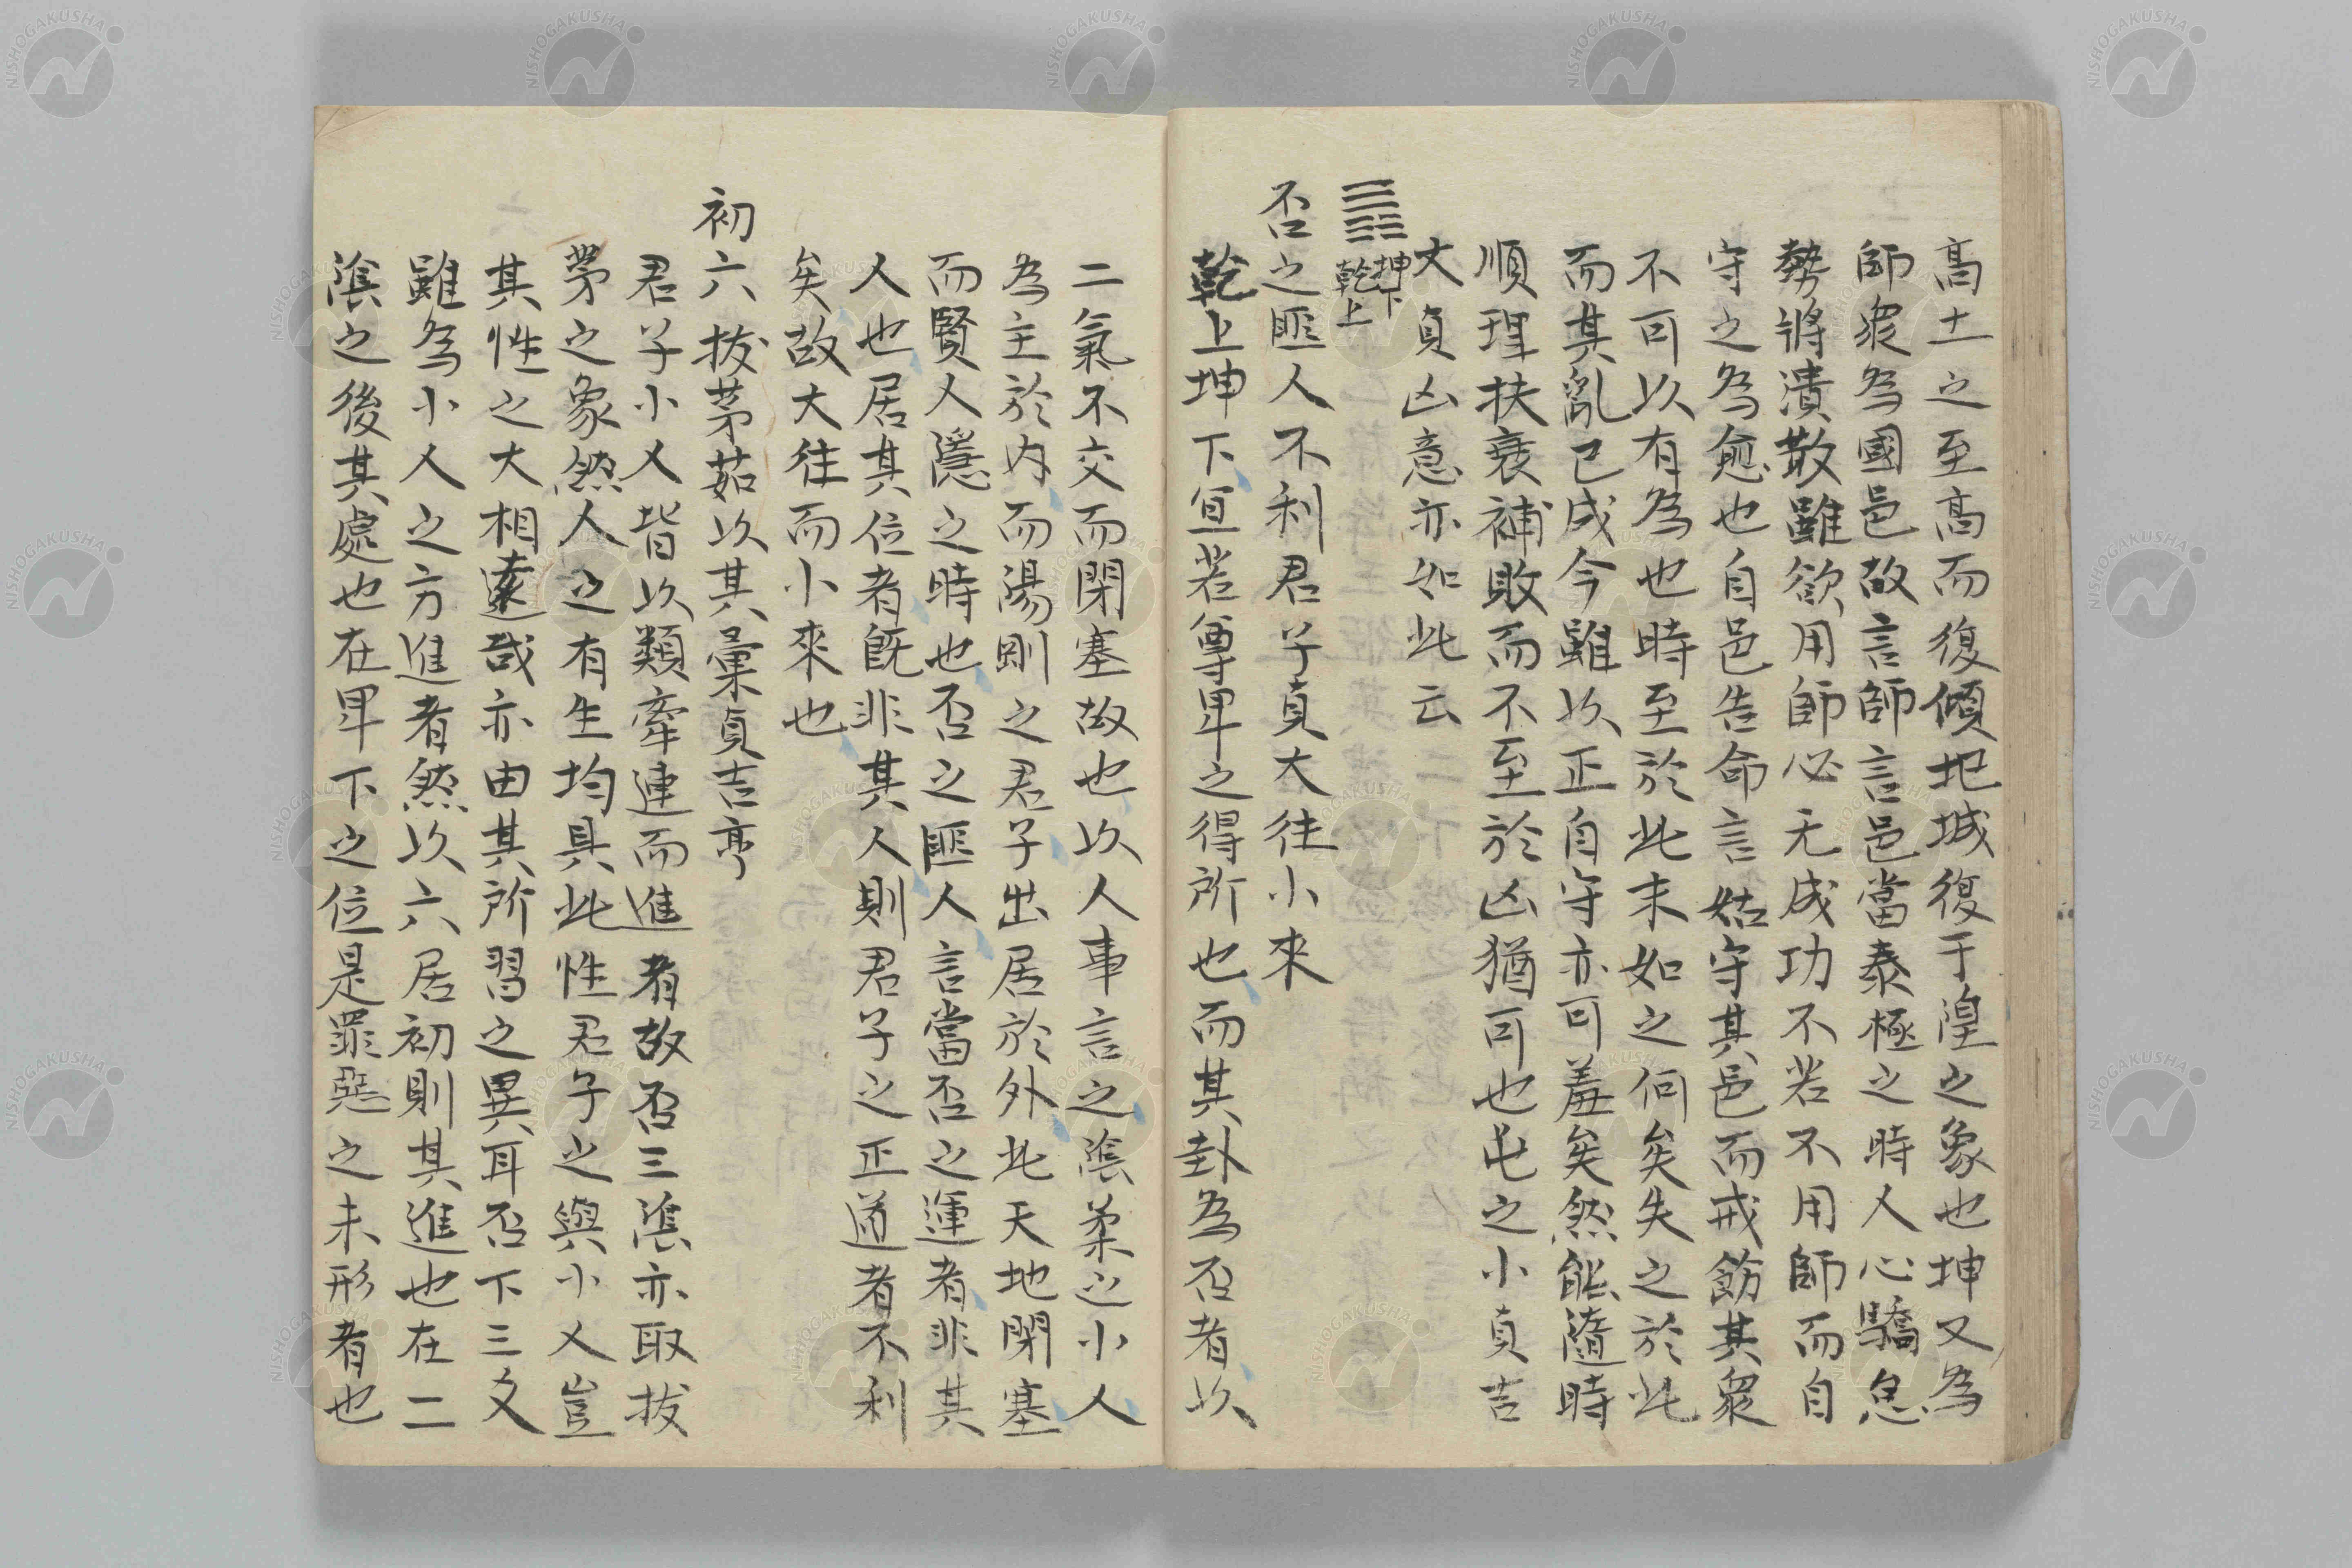 高土之至高而復傾圯城復于隍之象也坤又為
師衆為國邑故言師言邑當泰極之時人心驕怠
勢將潰散雖欲用師必无成功不若不用師而自
守之為愈也自邑告命言姑守其邑而戒飭其衆
不可以有為也時至於此末如之何矣失之於此
而其亂已成今雖以正自守亦可羞矣然能隨時
順理扶衰補敗而不至於凶猶可也屯之小貞吉
大貞凶意亦如此云
䷋ 坤下
乾上
否之匪人不利君子貞大往小來
乾上坤下宜若尊卑之得所也而其卦為否者以
二氣不交而閉塞故也以人事言之陰柔之小人
為主於内而陽剛之君子出居於外此天地閉塞
而賢人隱之時也否之匪人言當否之運者非其
人也居其位者既非其人則君子之正道者不利
矣故大往而小來也
初六拔茅茹以其彙貞吉亨
君子小人皆以類牽連而進者故否三陰亦取拔
茅之象然人之有生均具此性君子之與小人豈
其性之大相遠哉亦由其所習之異耳否下三爻
雖為小人之方進者然以六居初則其進也在二
陰之後其處也在卑下之位是罪惡之未形者也
NISHOGAKUSHA